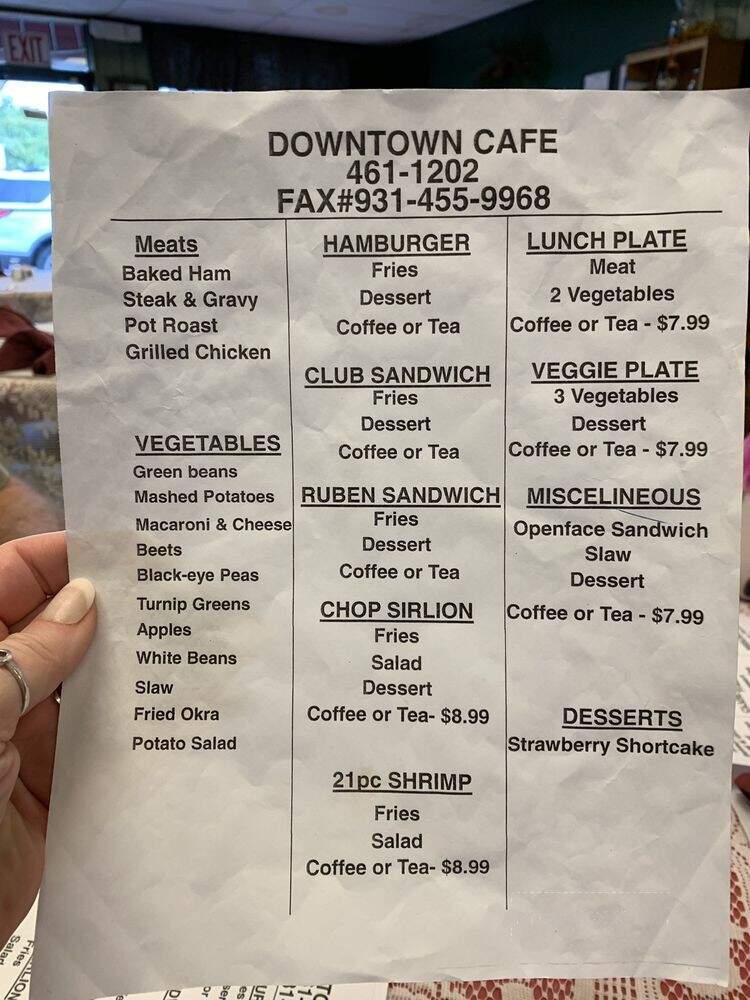 EXIT
DOWNTOWN CAFE
461-1202
FAX#931-455-9968
Meats
Baked Ham
Steak & Gravy
Pot Roast
Grilled Chicken
VEGETABLES
Green beans
Mashed Potatoes
Macaroni & Cheese
Beets
Black-eye Peas
Turnip Greens
Apples
White Beans
Slaw
Fried Okra
Potato Salad
HAMBURGER
Fries
Dessert
Coffee or Tea
CLUB SANDWICH
Fries
Dessert
Coffee or Tea
RUBEN SANDWICH
Fries
Dessert
Coffee or Tea
CHOP SIRLION
Fries
Salad
Dessert
Coffee or Tea- $8.99
21pc SHRIMP
Fries
Salad
Coffee or Tea- $8.99
LUNCH PLATE
Meat
2 Vegetables
Coffee or Tea - $7.99
VEGGIE PLATE
3 Vegetables
Dessert
Coffee or Tea - $7.99
MISCELINEOUS
Openface Sandwich
Slaw
Dessert
Coffee or Tea - $7.99
DESSERTS
Strawberry Shortcake
Fries
Salad